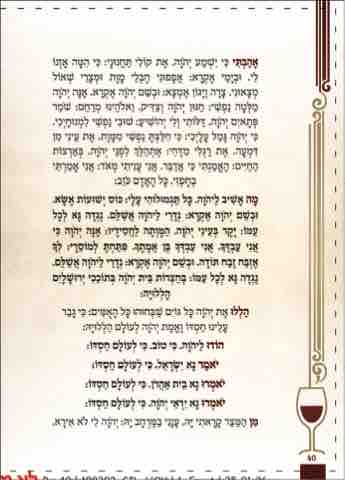 אָהַבְתִּי כִּי יִשְׁמַע יְהֹוָה, אֶת קוֹלִי תַּחֲנוּנָי: כִּי הִטָּה אָזְנוֹ
לִי, וּבְיָמַי אֶקְרָא: אֲפָפוּנִי חֶבְלֵי מָוֶת וּמְצָרֵי שְׁאוֹל
מְצָאוּנִי, צָרָה וְיָגוֹן אֶמְצָא: וּבְשֵׁם יְהֹוָה אֶקְרָא, אָנָּה יְהֹוָה
מַלְּטָה נַפְשִׁי: חַנּוּן יְהֹוָה וְצַדִּיק, וֵאלֹהֵינוּ מְרַחֵם: שֹׁמֵר
פְּתָאיִם יְהֹוָה, דַּלּוֹתִי וְלִי יְהוֹשִׁיעַ: שׁוּבִי נַפְשִׁי לִמְנוּחָיְכִי,
כִּי יְהֹוָה גָּמַל עָלָיְכִי: כִּי חִלַּצְתָּ נַפְשִׁי מִמָּוֶת, אֶת עֵינִי מִן
דִּמְעָה, אֶת רַגְלִי מִדֶּחִי: אֶתְהַלֵּךְ לִפְנֵי יְהֹוָה, בְּאַרְצוֹת
הַחַיִּים: הֶאֱמַנְתִּי כִּי אֲדַבֵּר, אֲנִי עָנִיתִי מְאֹד: אֲנִי אָמַרְתִּי
בְחָפְזִי, כָּל הָאָדָם כֹּזֵב:
מָה אָשִׁיב לַיהֹוָה, כָּל תַּגְמוּלוֹהִי עָלָי: כּוֹס יְשׁוּעוֹת אֶשָּׂא,
וּבְשֵׁם יְהֹוָה אֶקְרָא: נְדָרַי לַיהֹוָה אֲשַׁלֵּם, נֶגְדָה נָּא לְכָל
עַמּוֹ: יָקָר בְּעֵינֵי יְהֹוָה, הַמָּוְתָה לַחֲסִידָיו: אָנָּה יְהֹוָה כִּי
אֲנִי עַבְדֶּךָ, אֲנִי עַבְדְּךָ בֶּן אֲמָתֶךָ, פִּתַּחְתָּ לְמוֹסֵרָי: לְךָ
אֶזְבַּח זֶבַח תּוֹדָה, וּבְשֵׁם יְהֹוָה אֶקְרָא: נְדָרַי לַיהֹוָה אֲשַׁלֵּם,
נֶגְדָה נָּא לְכָל עַמּוֹ: בְּחַצְרוֹת בֵּית יְהֹוָה בְּתוֹכֵכִי יְרוּשָׁלָיִם
הַלְלוּיָהּ:
הַלְלוּ אֶת יְהֹוָה כָּל גּוֹיִם שַׁבְּחוּהוּ כָּל הָאֻמִּים: כִּי גָבַר
עָלֵינוּ חַסְדּוֹ וֶאֱמֶת יְהֹוָה לְעוֹלָם הַלְלוּיָהּ:
הוֹדוּ לַיהֹוָה, כִּי טוֹב, כִּי לְעוֹלָם חַסְדּוֹ:
יֹאמַר נָא יִשְׂרָאֵל, כִּי לְעוֹלָם חַסְדּוֹ:
יֹאמְרוּ נָא בֵית אַהֲרֹן, כִּי לְעוֹלָם חַסְדּוֹ:
יֹאמְרוּ נָא יִרְאֵי יְהֹוָה, כִּי לְעוֹלָם חַסְדּוֹ:
מִן הַמֵּצַר קָרָאתִי יָּהּ, עָנָנִי בַמֶּרְחָב יָהּ: יְהֹוָה לִי לֹא אִירָא,
40